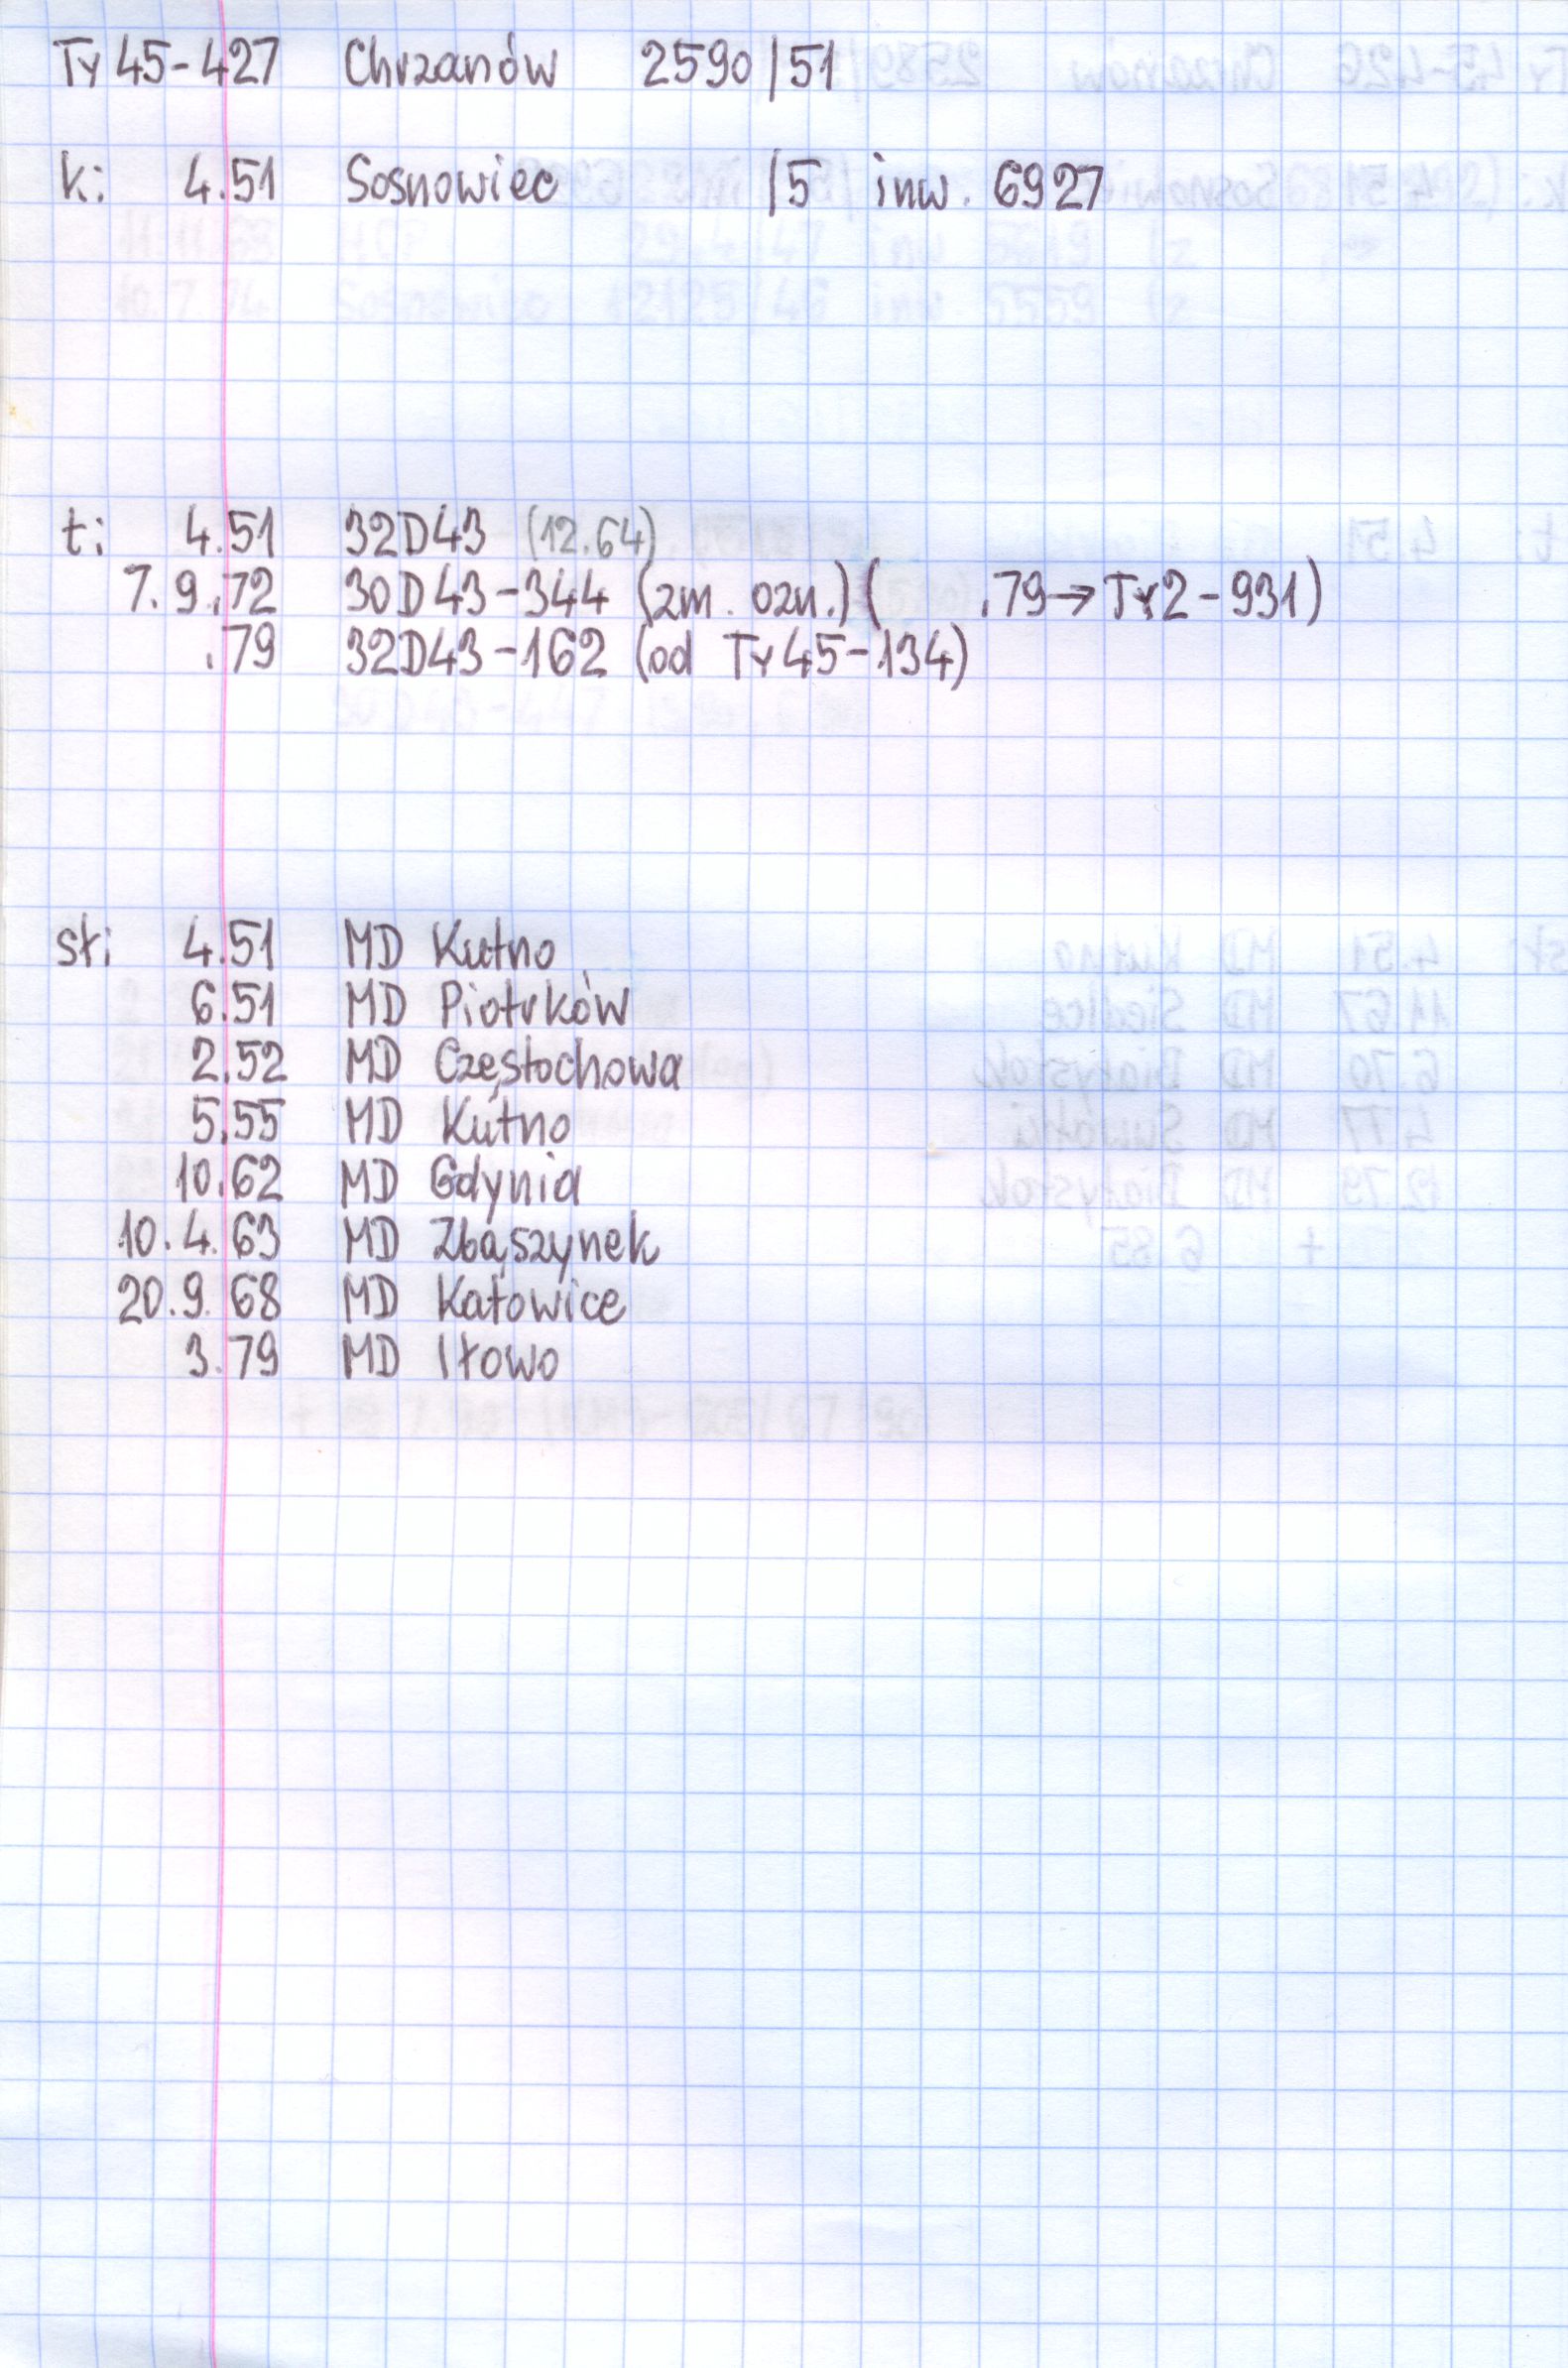 Ty45-427 Chrzanów 2590/51
k: 4.51 Sosnowiec /5 inw. 6927
t: 4.51 32D43 (12.64)
7.9.72 30D43-344 (zm. ozn.) ( .79→Ty2-931)
.79 32D43-162 (od Ty45-134)
st: 4.51 MD Kutno
6.51 MD Piotrków
2.52 MD Częstochowa
5.55 MD Kutno
10.62 MD Gdynia
10.4.63 MD Zbąszynek
20.9.68 MD Katowice
3.79 MD Iłowo